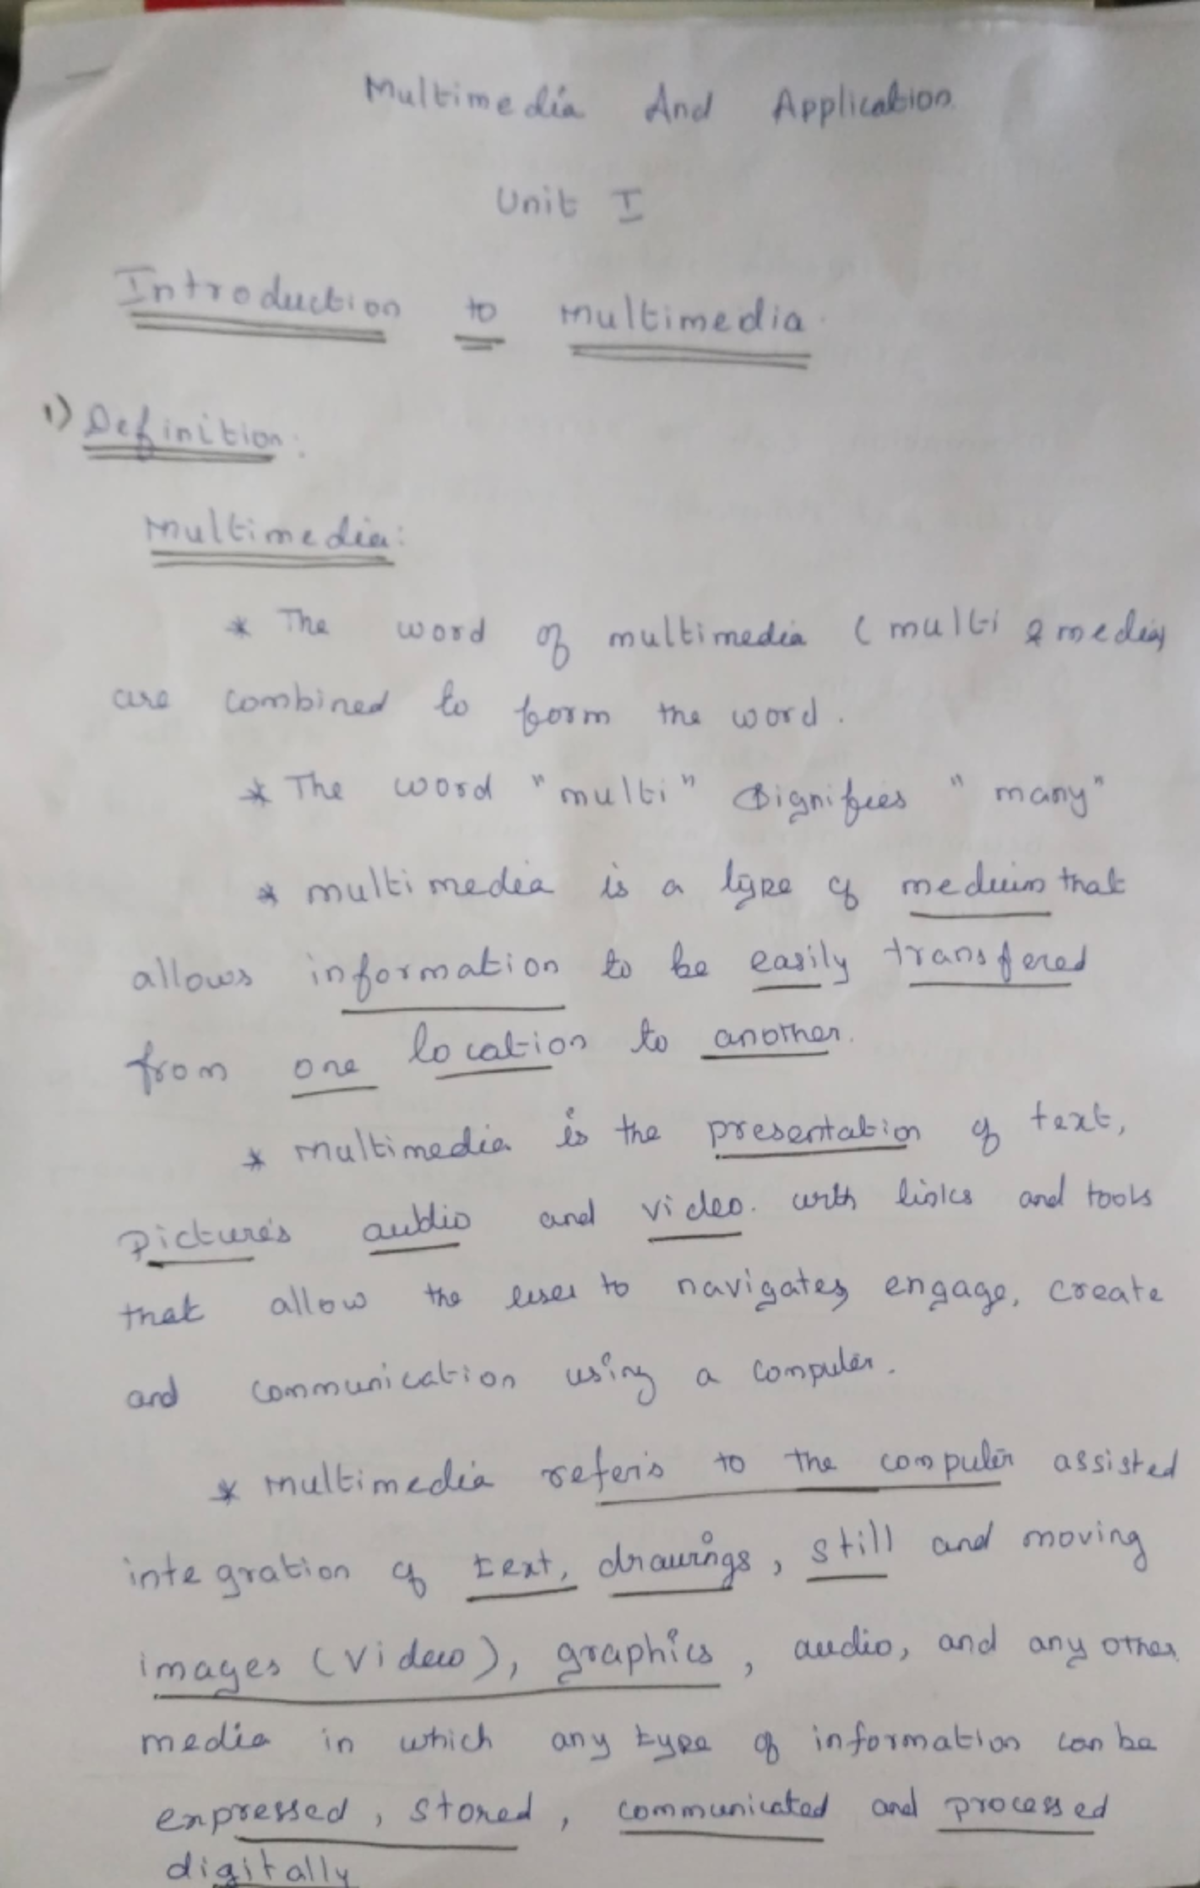 Multimedia And Application
Unit I
Introduction to Multimedia.
1) Definition:
Multimedia:
* The word of multimedia ( multi & media)
are combined to form the word.
* The word "multi" Signifies "many"
* multimedia is a type of medium that
allows information to be easily transfered
from one location to another.
* Multimedia is the presentation of text,
Pictures audio and video. with links and tools
that allow the user to navigates, engage, create
and communication using a computer.
* Multimedia refers to the computer assisted
integration of text, drawings, still and moving
images (Video), graphics, audio, and any other
media in which any type of information can be
expressed, stored, communicated and processed
digitally